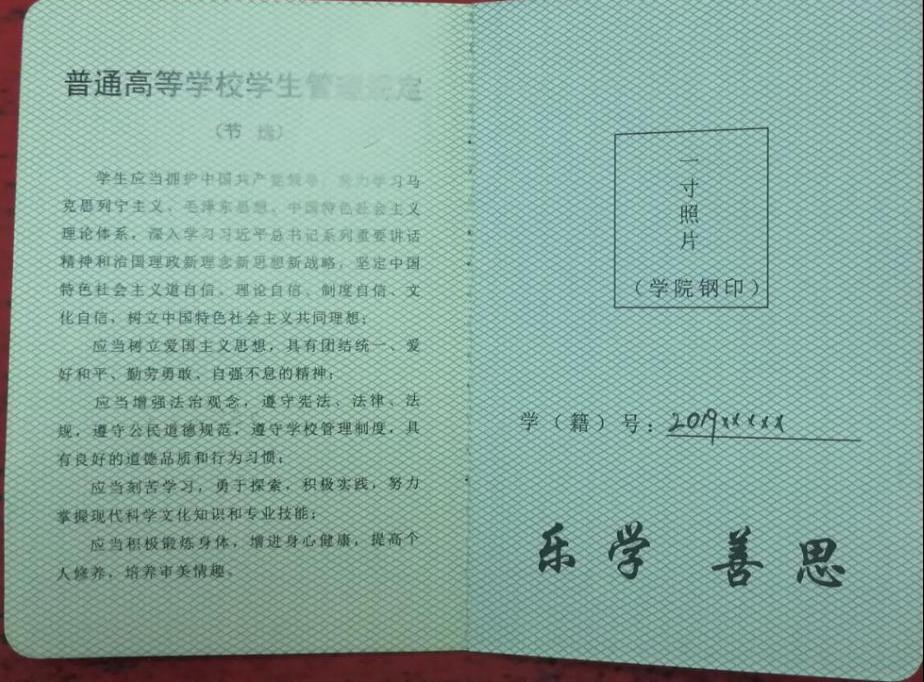 普通高等学校学生管理规定
（节 选）
学生应当拥护中国共产党领导，努力学习马
克思列宁主义、毛泽东思想、中国特色社会主义
理论体系，深入学习习近平总书记系列重要讲话
精神和治国理政新理念新思想新战略，坚定中国
特色社会主义道自信、理论自信、制度自信、文
化自信，树立中国特色社会主义共同理想；
应当树立爱国主义思想，具有团结统一、爱
好和平、勤劳勇敢、自强不息的精神；
应当增强法治观念，遵守宪法、法律、法
规，遵守公民道德规范，遵守学校管理制度，具
有良好的道德品质和行为习惯；
应当刻苦学习，勇于探索，积极实践，努力
掌握现代科学文化知识和专业技能；
应当积极锻炼身体，增进身心健康，提高个
人修养，培养审美情趣。
一
寸
照
片
（学院钢印）
学（籍）号：2019xxxxx
乐学 善思